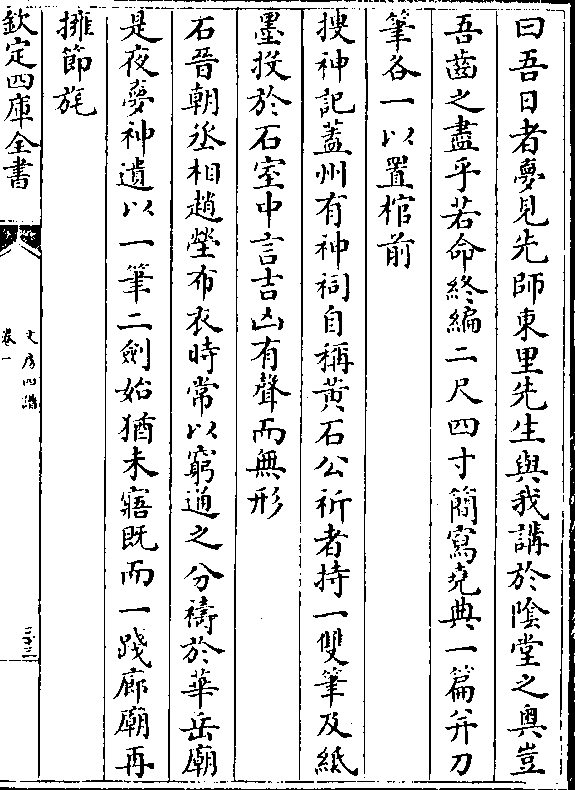 曰吾日者夢見先師東里先生與我講於陰堂之奧豈
吾齒之盡乎若命終編二尺四寸簡寫堯典一篇并刀
筆各一以置棺前
搜神記葢州有神祠自稱黃石公祈者持一雙筆及紙
墨投於石室中言吉凶有聲而無形
石晉朝丞相趙瑩布衣時常以窮通之分禱於華岳廟
是夜夢神遺以一筆二劍始猶未寤既而一踐廊廟再
擁節旄
欽定四庫全書
文房四譜
卷一
三十三